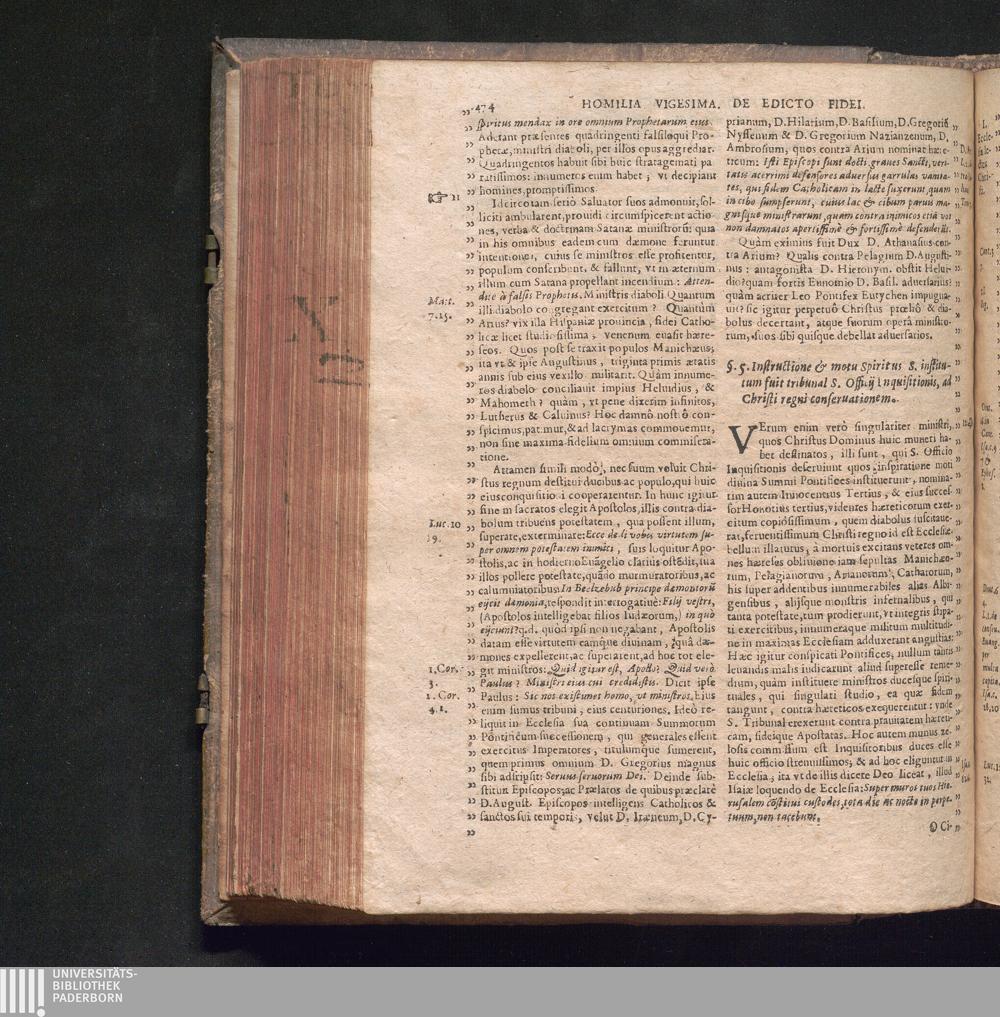 474
HOMILIA VIGESIMA. DE EDICTO FIDEI.
spiritus mendax in ore omnium Prophetarum eius.
Aderant præsentes quadringenti falsiloqui Pro-
phetæ, ministri diaboli, per illos opus aggrediar.
Quadringentos habuit sibi huic stratagemati pa-
ratissimos: innumeros enim habet; vt decipiant
homines, promptissimos.
11
Idcirco tam seriò Saluator suos admonuit, sol-
liciti ambularent, prouidi circumspicerent actio-
nes, verba & doctrinam Satanæ ministrorū: quia
in his omnibus eadem cum dæmone feruntur
intentione, cuius se ministros esse profitentur,
populum conscribunt, & fallunt, vt in æternum
illum cum Satana propellant incendium: Atten-
dite à falsis Prophetis. Ministris diaboli Quantum
illi diabolo congregant exercitum? Quantùm
Arius? vix illa Hispaniæ prouincia, fidei Catho-
licæ licet studiosissima; venenum euasit hære-
seos. Quos post se traxit populos Manichæus;
ita vt & ipse Augustinus, triginta primis ætatis
annis sub eius vexillo militarit. Quàm innume-
ros diabolo conciliauit impius Heluidius, &
Mahometh? quàm, vt pene dixerim infinitos,
Lutherus & Caluinus? Hoc damnū nostrū con-
spicimus, patimur, & ad lacrymas commouemur,
non sine maxima fidelium omnium commisera-
tione.
Mart.
7.15.
Attamen simili modo, nec suum voluit Chri-
stus regnum destitui ducibus ac populo, qui huic
eius conquisitioni cooperarentur. In hunc igitur
fine m sacratos elegit Apostolos, illis contra dia-
bolum tribuens potestatem, qua possent illum,
superate, exterminate: Ecce dedi vobis virtutem su-
per omnem potestatem inimici, suis loquitur Apo-
stolis, ac in hodierno Euāgelio clarius ostēdit, sua
illos pollere potestate, quādo murmuratoribus, ac
calumniatoribus: In Beelzebub principe dæmoniorū
eijcit dæmonia, respondit interrogatiuè: Filij vestri,
(Apostolos intelligebat filios Iudæorum,) in quo
eijciunt? q.d. quòd ipsi non negabant, Apostolis
datam esse virtutem eamque diuinam, quâ dæ-
mones expellerent, ac superarent, ad hoc tot ele-
git ministros: Quid igitur est, Apollo? Quid verò
Paulus? Ministri eius cui credidistis. Dicit ipse
Paulus: Sic nos existimet homo, vt ministros. Eius
enim sumus tribuni, eius centuriones. Ideò re-
liquit in Ecclesia sua continuam Summorum
Pontificum successionem, qui generales essent
exercitus Imperatores, titulumque sumerent,
quem primus omnium D. Gregorius magnus
sibi adscripsit: Seruus seruorum Dei. Deinde sub-
stituit Episcopos, ac Prælatos de quibus præclarè
D. August. Episcopos intelligens Catholicos &
sanctos sui temporis, velut D. Iræneum, D. Cy-
Luc. 10
19.
1. Cor.
3.
1. Cor.
4.1.
prianum, D. Hilarium, D. Basilium, D. Gregoriū
Nyssenum & D. Gregorium Nazianzenum, D.
Ambrosium, quos contra Arium nominat hære-
ticum: Isti Episcopi sunt docti, graues Sancti, veri-
tatis acerrimi defensores aduersus garrulas vanita-
tes, qui fidem Catholicam in lacte suxerunt, quam
in cibo sumpserunt, cuius lac & cibum paruis ma-
gnisque ministrarunt, quam contra inimicos etiā vos
non damnatos apertissimè & fortissimè defenderūt.
Quàm eximius fuit Dux D. Athanasius con-
tra Arium? Qualis contra Pelagium D. Augusti-
nus: antagonista D. Hieronym. obstit Helui-
dio? quam fortis Eunomio D. Basil. aduersarius?
quàm acriter Leo Pontifex Eutychen impugna-
uit? sic igitur perpetuò Christus prœliò & dia-
bolus decertant, atque suorum operâ ministro-
rum, suos sibi quisque debellat aduersarios.
§. 5. Instructione & motu Spiritus S. institu-
tum fuit tribunal S. Officij Inquisitionis, ad
Christi regni conseruationem.
VErum enim verò singulariter ministri,
quos Christus Dominus huic muneri ha-
bet destinatos, illi sunt, qui S. Officio
Inquisitionis deseruiunt quos inspiratione moti
diuina Summi Pontifices instituerunt, nomina-
tim autem Innocentius Tertius, & eius succes-
sor Honorius tertius, videntes hæreticorum exer-
citum copiosissimum, quem diabolus suscitaue-
rat, feruentissimum Christi regno id est Ecclesiæ
bellum illaturus, à mortuis excitans veteres om-
nes hæreses obliuione iam sepultas Manichæo-
rum, Pelagianorum, Arianorum, Catharorum,
his super addentibus innumerabiles alias Albi-
gensibus, alijsque monstris infernalibus, qui
tanta potestate, tum prodierunt, vt integris stipa-
ti exercitibus, innumeraque militum multitudi-
ne in maximas Ecclesiam adduxerint angustias:
Hæc igitur conspicati Pontifices, nullum tantis
leuandis malis indicarunt aliud superesse reme-
dium, quàm instituere ministros ducesque spiri-
tuales, qui singulati studio, ea quæ fidem
tangunt, contra hæreticos exequerentur: vnde
S. Tribunal erexerunt contra prauitatem hæreti-
cam, fideique Apostatas. Hoc autem munus ze-
losis commissum est Inquisitoribus duces esse
huic officio strenuissimos; & ad hoc eliguntur in
Ecclesia; ita vt de illis dicere Deo liceat, illud
Isaiæ loquendo de Ecclesia: Super muros tuos Hie-
rusalem cōstitui custodes, tota die ac nocte in perpe-
tuum, non tacebunt.
O Ci-
UNIVERSITÄTS-
BIBLIOTHEK
PADERBORN